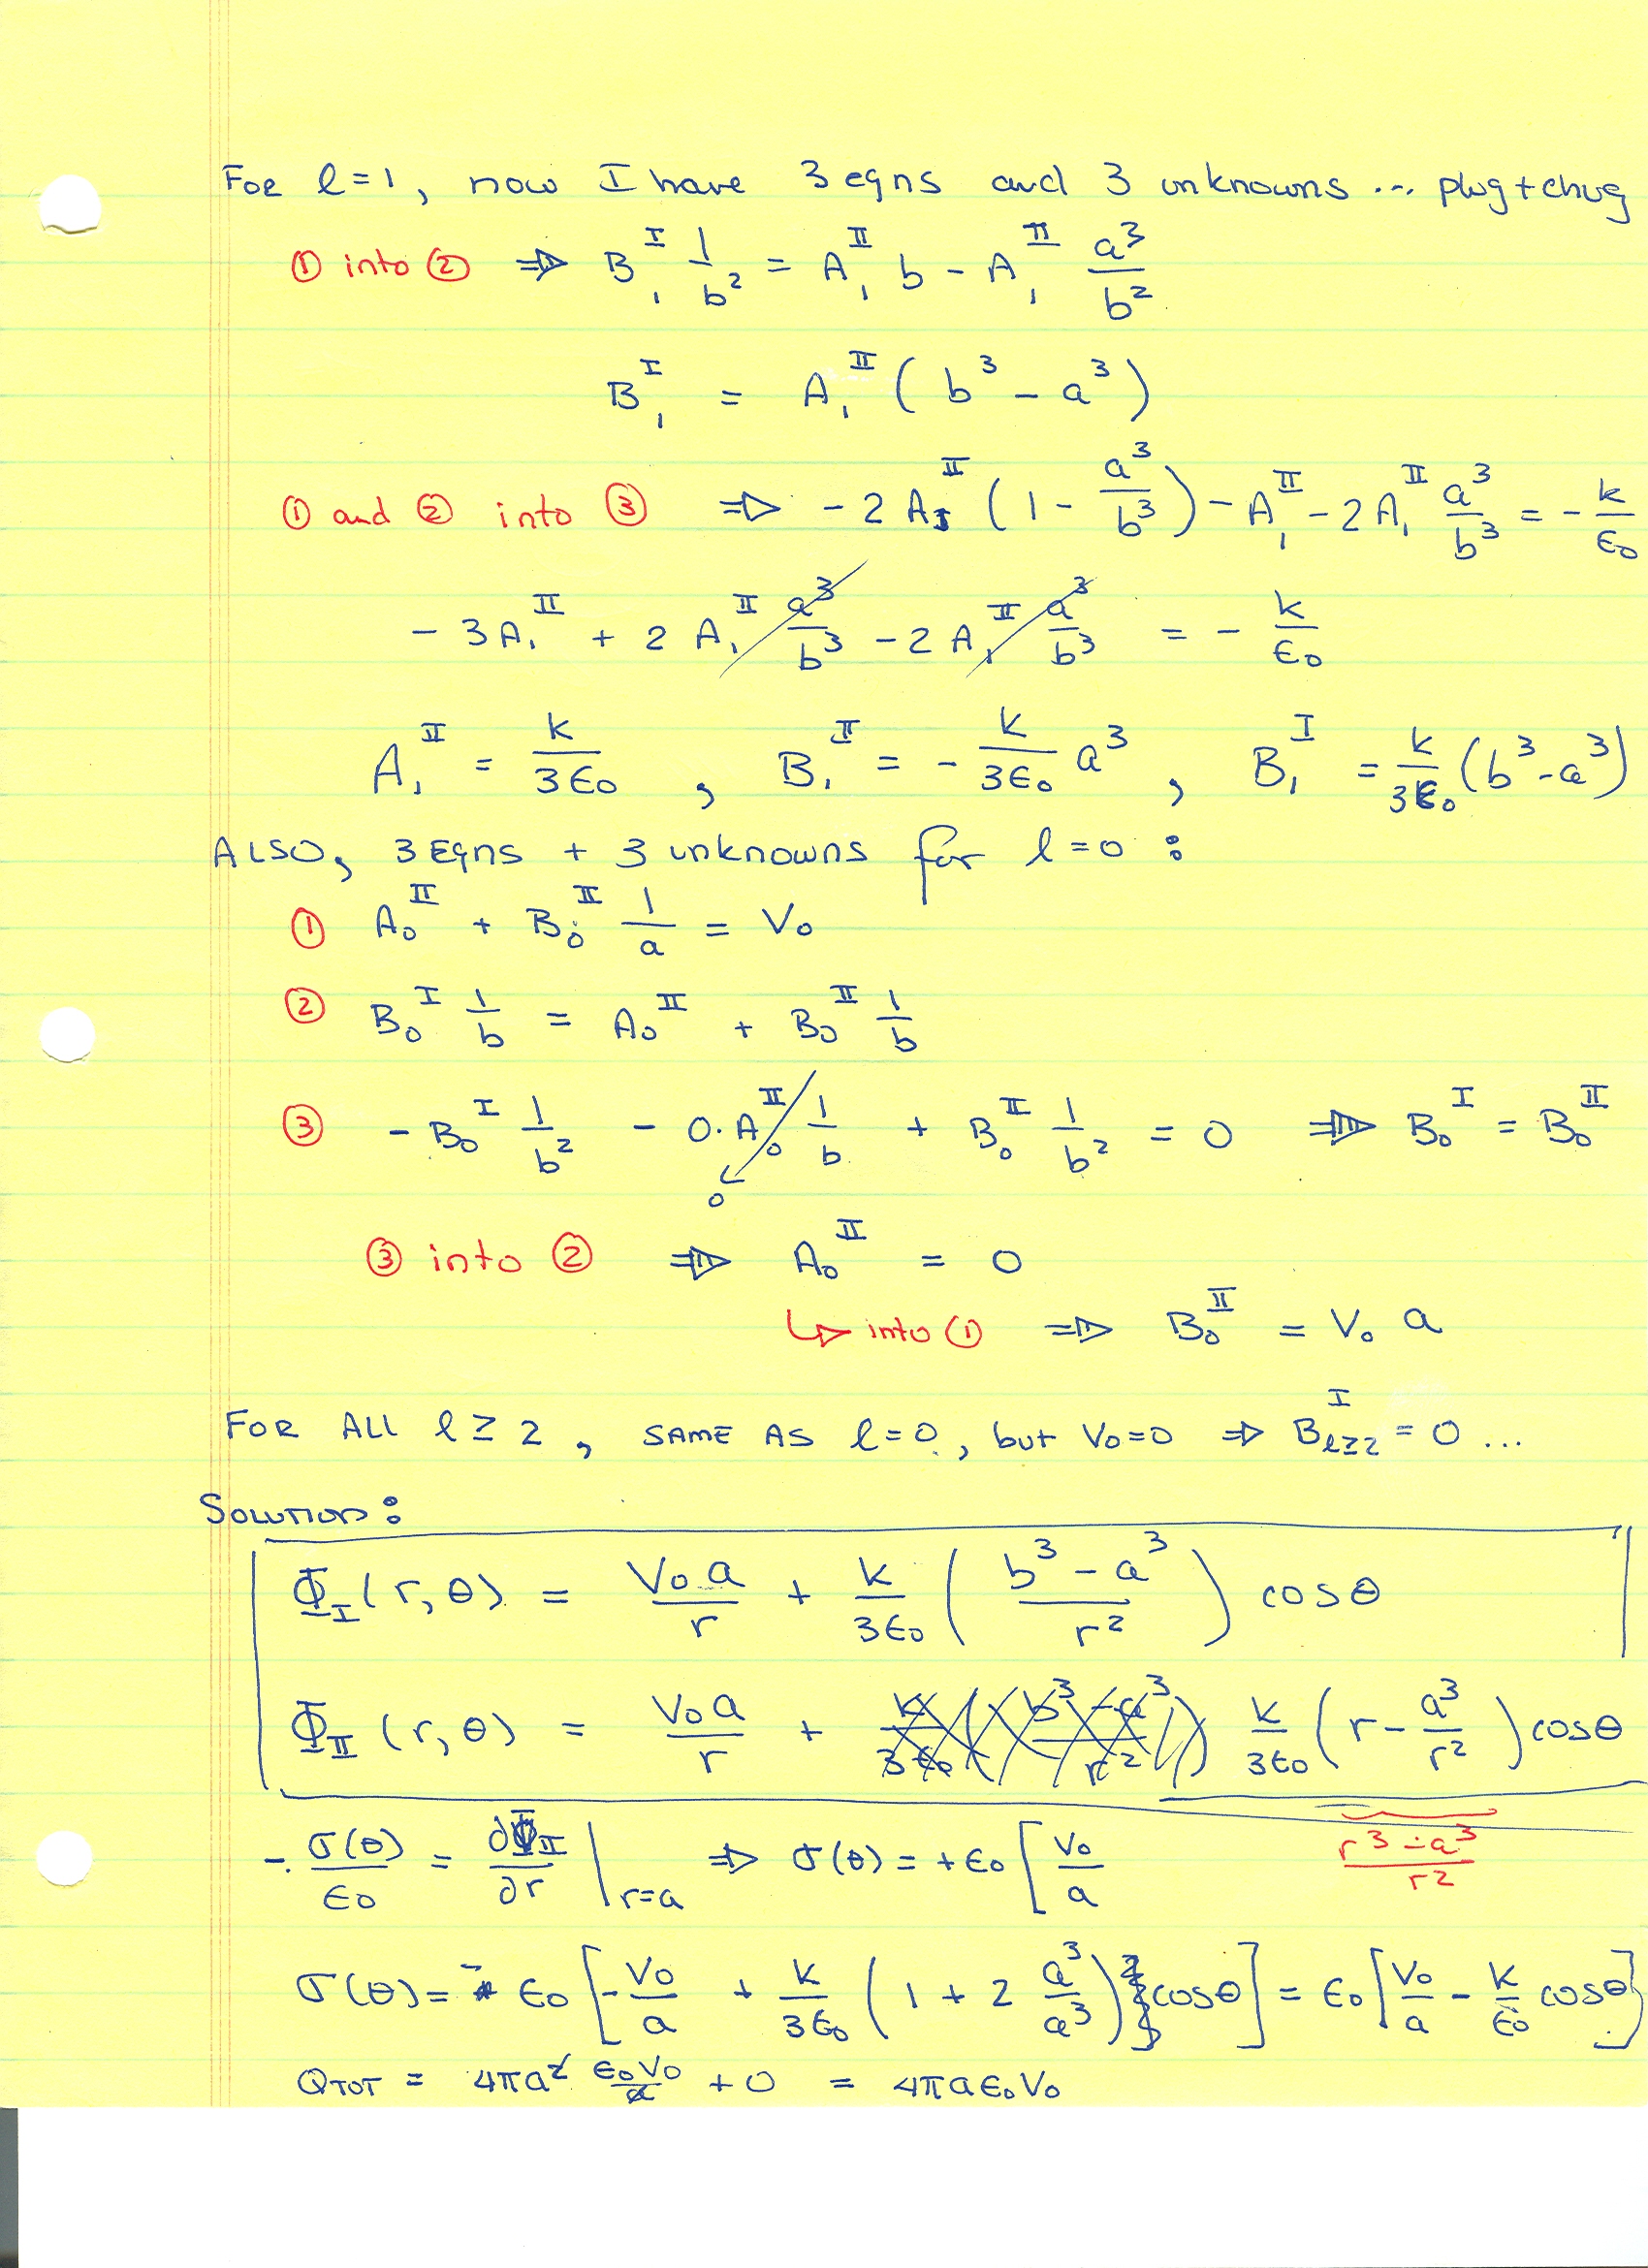 For l=1, now I have 3 eqns and 3 unknowns ... plug+chug
① into ② ⇒ B₁^I 1/b² = A₁^II b - A₁^II a³/b²
B₁^I = A₁^II (b³ - a³)
① and ② into ③ ⇒ -2 A₁^II (1 - a³/b³) - A₁^II - 2A₁^II a³/b³ = - k/ε₀
- 3A₁^II + 2 A₁^II a³/b³ - 2 A₁^II a³/b³ = - k/ε₀
A₁^II = k/3ε₀ , B₁^II = - k/3ε₀ a³ , B₁^I = k/3ε₀ (b³-a³)
ALSO, 3 Eqns + 3 unknowns for l=0 :
① A₀^II + B₀^II 1/a = V₀
② B₀^I 1/b = A₀^II + B₀^II 1/b
③ - B₀^I 1/b² - 0·A₀^II 1/b + B₀^II 1/b² = 0 ⇒ B₀^I = B₀^II
0
③ into ② ⇒ A₀^II = 0
↳ into ① ⇒ B₀^II = V₀ a
FOR ALL l ≥ 2 , SAME AS l=0, but V₀=0 ⇒ B_l≥2^I = 0 ...
SOLUTION:
Φ_I (r,θ) = V₀a/r + k/3ε₀ ( (b³-a³)/r² ) cosθ
Φ_II (r,θ) = V₀a/r + k/3ε₀ ( (b³-a³)/r² ) k/3ε₀ ( r - a³/r² ) cosθ
- σ(θ)/ε₀ = ∂Φ_II/∂r |r=a ⇒ σ(θ) = +ε₀ [ V₀/a
(r³-a³)/r²
σ(θ) = - ε₀ [ -V₀/a + k/3ε₀ ( 1 + 2 a³/a³ ) cosθ ] = ε₀ [ V₀/a - k/ε₀ cosθ ]
Q_TOT = 4πa² ε₀V₀/a + 0 = 4πaε₀V₀